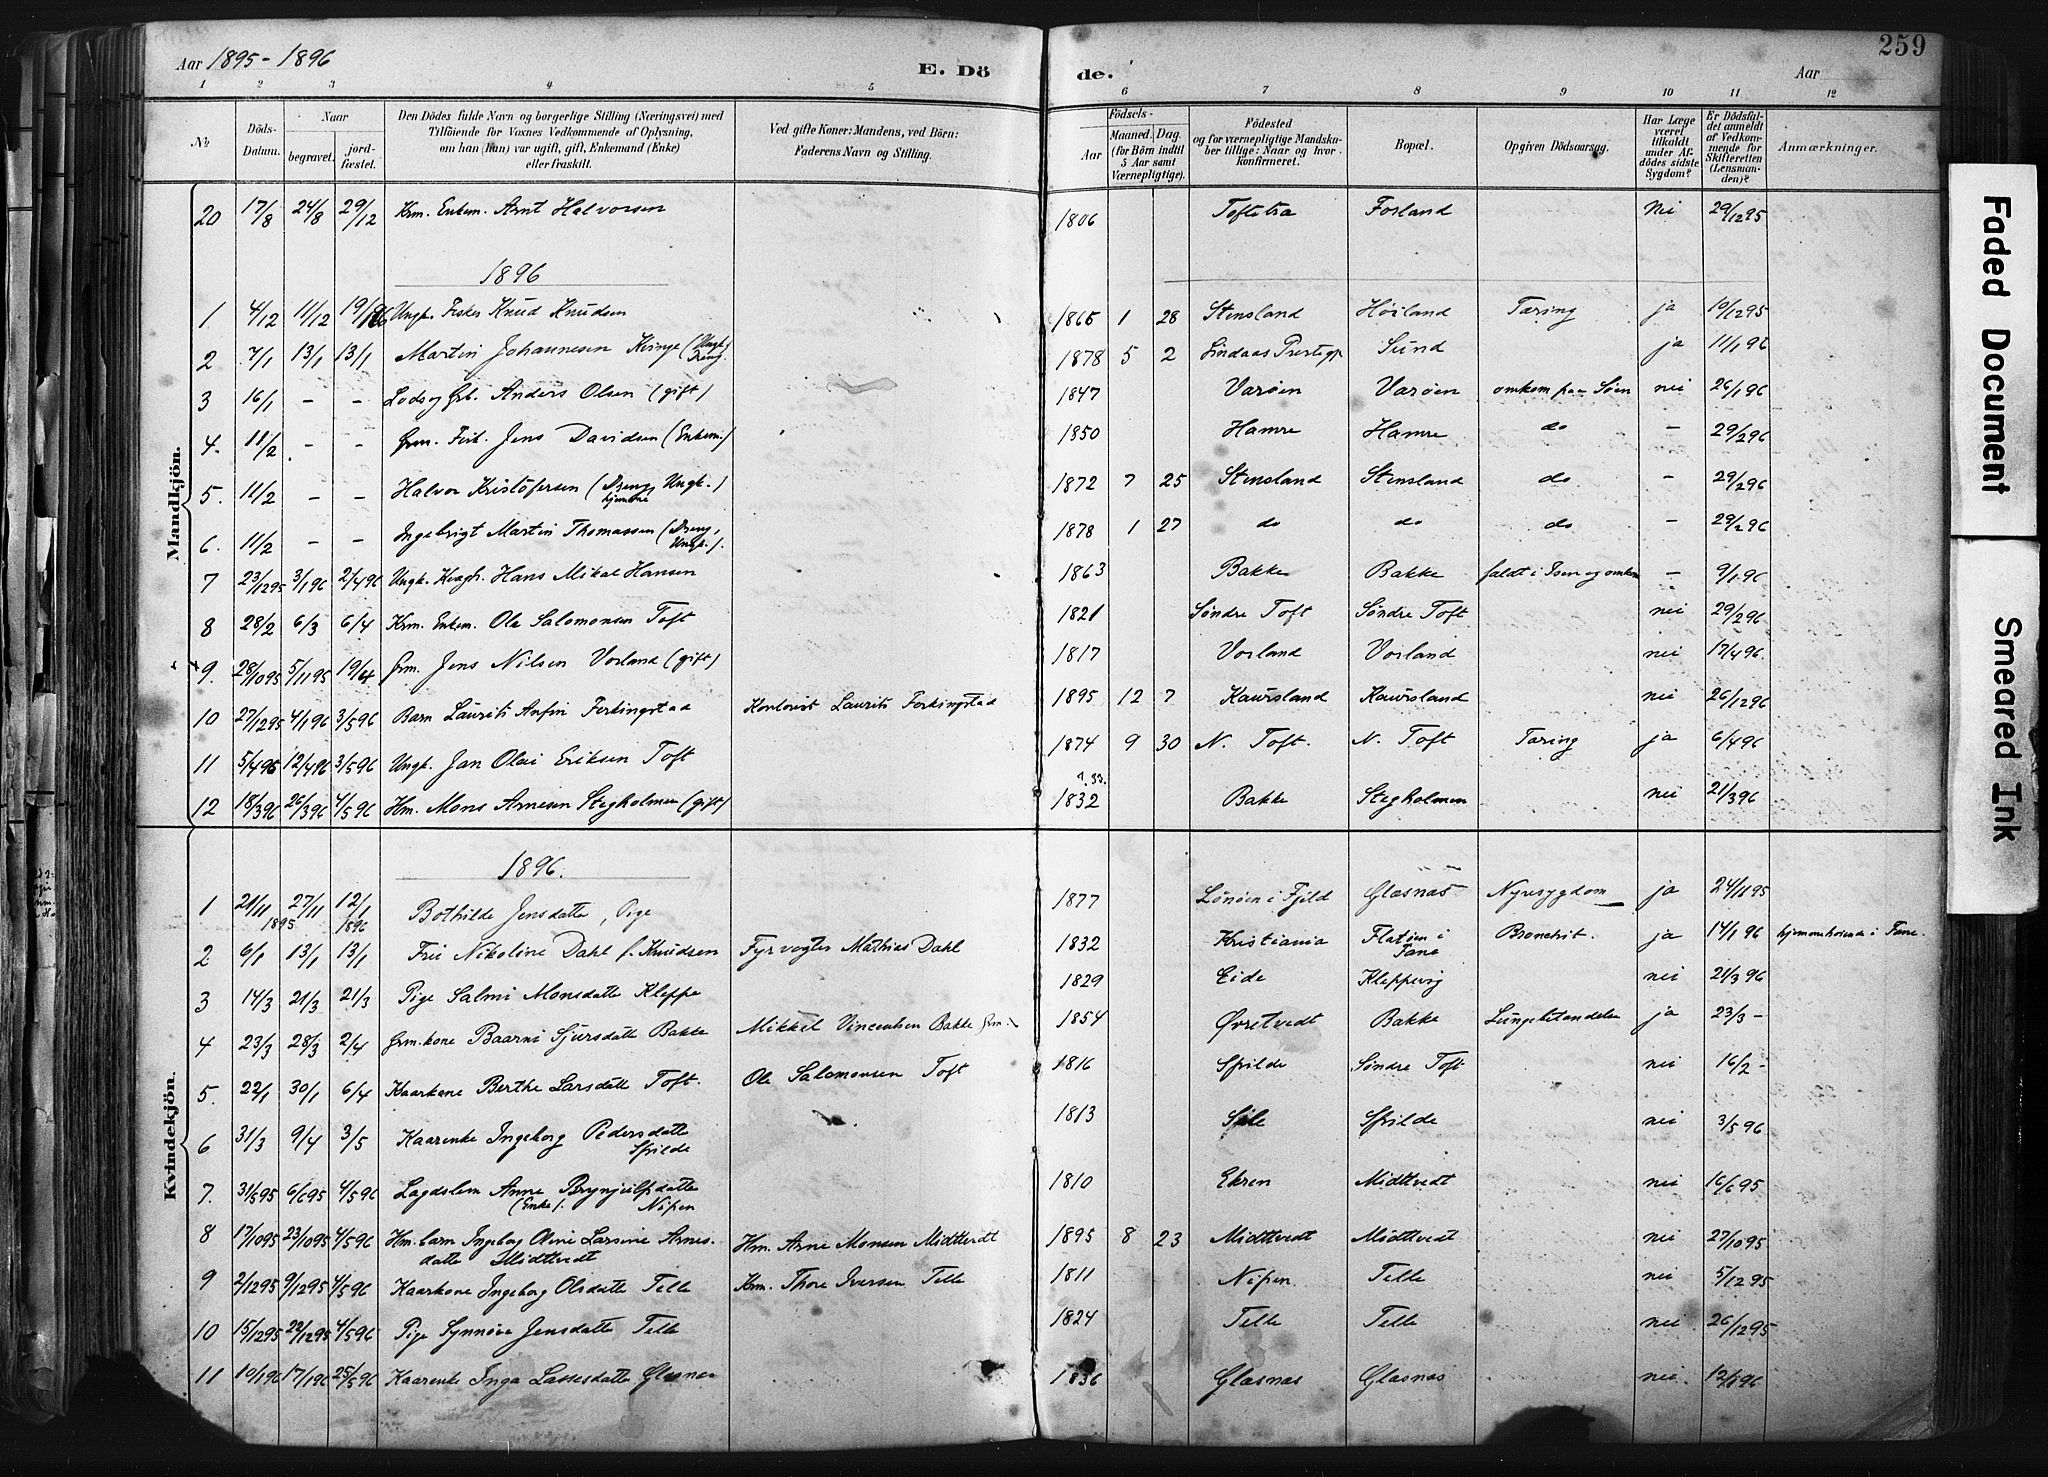 Aar 1895-1896
E. Döde.
259
Aar
1 2 3 4 5 6 7 8 9 10 11 12
№
Döds-Datum.
Naar
begravet.
jordfæstet.
Den Dödes fulde Navn og borgerlige Stilling (Næringsvei) med
Tilföiende for Voxnes Vedkommende af Oplysning,
om han (hun) var ugift, gift, Enkemand (Enke)
eller fraskilt.
Ved gifte Koner: Mandens, ved Börn:
Faderens Navn og Stilling.
Födsels-
Aar
Maaned. Dag.
(for Börn indtil
5 Aar samt
Værnepligtige).
Födested
og for værnepligtige Mandskaber tillige: Naar og hvor
konfirmeret.
Bopæl.
Opgiven Dödsaarsag.
Har Læge
været
tilkaldt
under Afdödes sidste
Sygdom?
Er Dödsfaldet anmeldt
af Vedkommende for
Skifteretten
(Lensmanden)?
Anmærkninger.
Mandkjön.
20 17/8 24/8 29/12 Krm. Enkem. Arnt Halvorsen 1806 Toftetra Forland Nei 29/12 95
1896
1. 4/12 11/12 19/1 96 Ungk. Fisker Knud Knudsen 1865 1 28 Stensland Höiland Tæring ja 19/12 95
2 7/1 13/1 13/1 Martin Johannesen Kvinge (Ungk. Dreng) 1878 5 2 Lindaas Prestegj Sund ja 11/1 96
3 16/1 - - Lods og Grb. Anders Olsen (gift) 1847 Varøen Varøen omkom paa Søen nei 26/1 96
4. 11/2 - - Grm. Fisk. Jens Davidsen (Enkem.) 1850 Hamre Hamre do - 29/2 96
5. 11/2 - - Halvor Kristofersen (Dreng, Ungk.) hjemme 1872 7 25 Stensland Stensland do - 29/2 96
6. 11/2 - - Ingebrigt Martin Thomassen (Dreng, Ungk.). 1878 1 27 do do do - 29/2 96
7 23/12 95 3/1 96 2/4 96 Ungk. Hans Mikal Hansen 1863 Bakke Bakke faldt i Isen og omkom - 9/1 96
8 28/2 6/3 6/4 Krm. Enkem. Ole Salomonsen Toft 1821 Søndre Toft Søndre Toft nei 29/2 96
9. 28/10 95 5/11 95 19/4 Grm. Jens Nilsen Vorland (gift) 1817 Vorland Vorland nei 17/4 96.
10 27/12 95 4/1 96 3/5 96 Barn Laurits Anfin Ferkingstad Laurits Ferkingstad 1895 12 7 Kaursland Kaursland nei 26/12 96
11 5/4 96 12/4 96 3/5 96 Ungk. Jan Olai Eriksen Toft 1874 9 30 N. Toft. N. Toft Tæring ja 6/4 96
12 18/3 96 26/3 96 4/5 96 Hm. Mons Arnesen Stegholmen (gift) 1832 Bakke Stegholmen nei 21/3 96
Kvindekjön.
1896.
1 21/11 27/11 1895 12/1 1896 Bothilde Jensdatte, Pige 1877 Lønøen i Fjeld Glæsnæs Nyresygdom ja 24/11 95
2 6/1 13/1 13/1 Fru Nikoline Dahl f. Knudsen Fyrvogter Mathias Dahl 1832 Kristiania Flatøen i Fane Bronchit. ja 14/1 96 hjemmehørende i Fane.
3 14/3 21/3 21/3 Pige Salmi Monsdatte Kleppe 1829 Eide Kleppevig nei 21/3 96
4 23/3 28/3 2/4 Grm.kone Baarni Sjursdatte Bakke Mikkel Vincentsen Bakke Grm. 1854 Øvretvedt Bakke Lungebetændelse ja 23/3 -
5. 22/1 30/1 6/4 Kaarkone Berthe Larsdatte Toft. Ole Salomonsen Toft 1816 Spilde Søndre Toft nei 16/2 -
6 31/3 9/4 3/5 Kaarenke Ingeborg Pedersdatte Spilde 1813 Sele Spilde nei 3/5 96
7. 31/5 95 6/6 95 4/5 96 Lægdslem Anne Brynjulfsdatte (Enke). Nipen 1810 Ekren Midttvedt nei 16/6 95
8 17/10 95 23/10 95 4/5 96 Hm.barn Ingeborg Oline Larsine Arnesdatte Midttvedt Hm. Arne Monsen Midttvedt 1895 8 23 Midttvedt Midttvedt nei 27/10 95
9 2/12 95 9/12 95 4/5 96 Kaarkone Ingeborg Olsdatte Telle Krm. Thore Iversen Telle 1811 Nipen Telle nei 5/12 95
10 15/12 95 22/12 95 4/5 96 Pige Synnøve Jensdatte Telle 1824 Telle Telle nei 26/12 95
11 10/1 96 17/1 96 25/5 96 Kaarenke Inga Lassesdatte Glesnes 1836 Glæsnæs Glæsnæs nei. 12/1 96
Faded Document
Smeared Ink